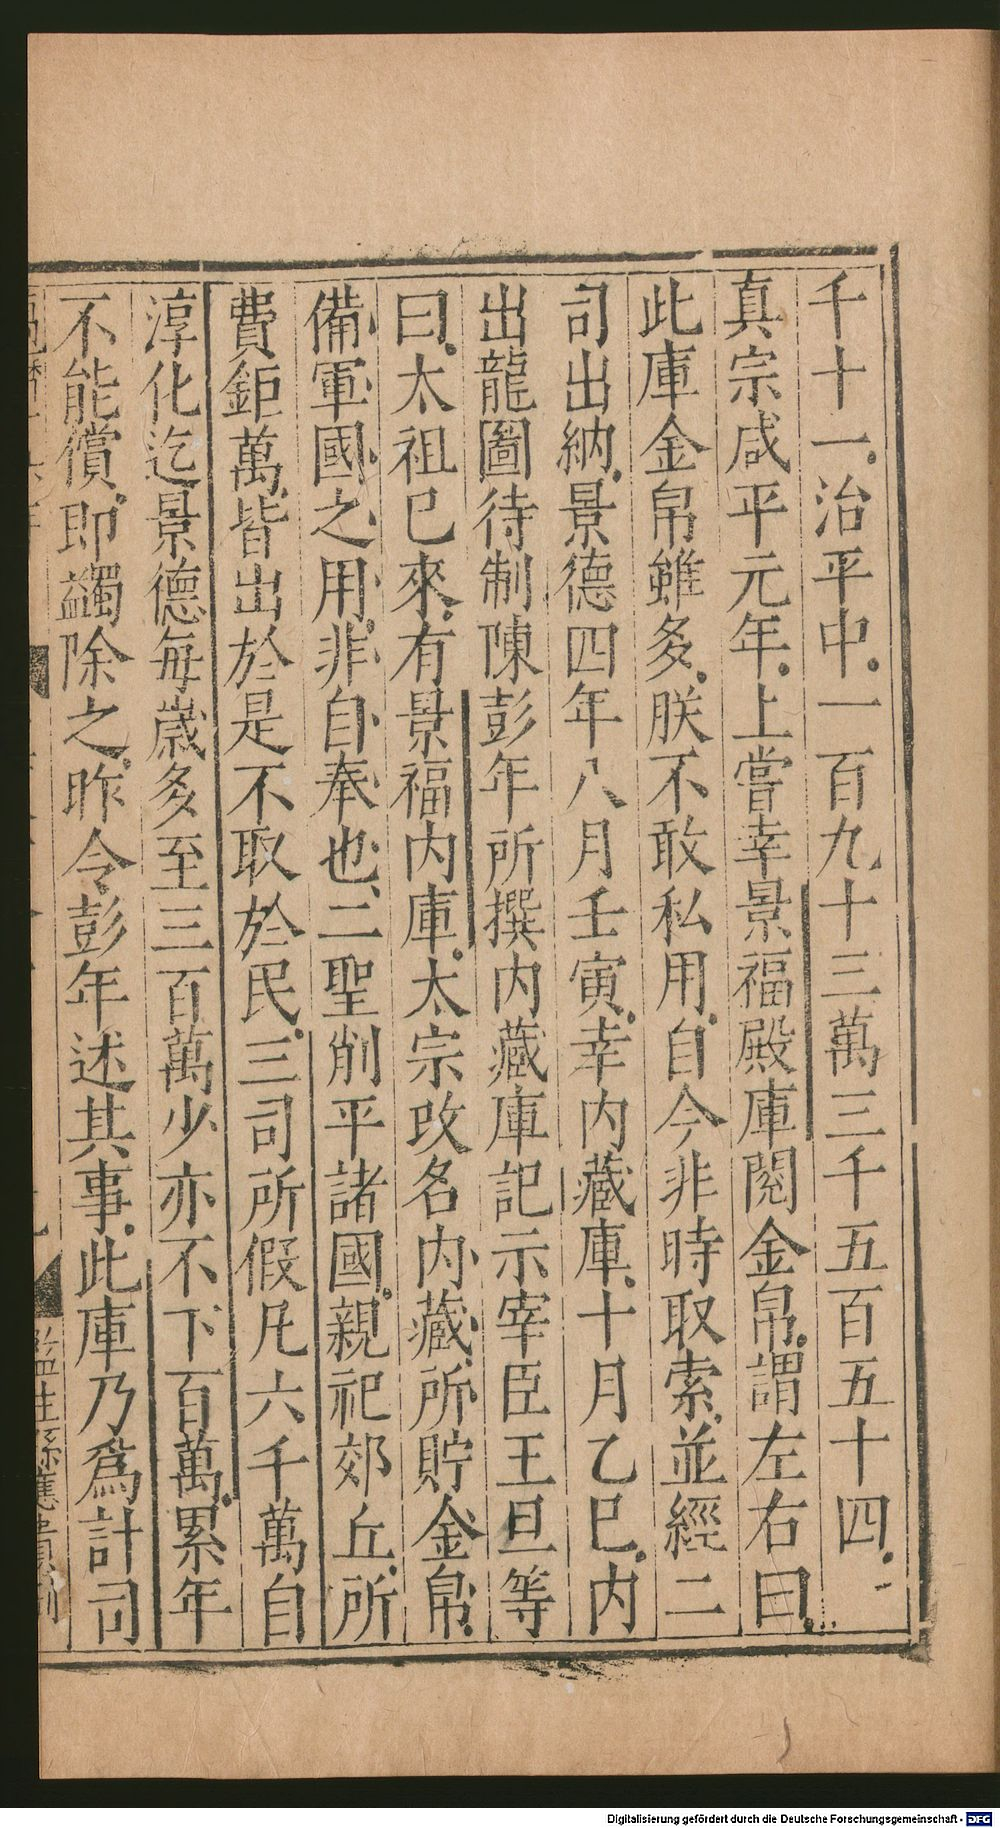 千十一。治平中。一百九十三萬三千五百五十四。
真宗咸平元年。上嘗幸景福殿庫閱金帛。謂左右曰。
此庫金帛雖多。朕不敢私用。自今非時取索。並經二
司出納。景德四年八月壬寅。幸内藏庫。十月乙巳。内
出龍圖待制陳彭年所撰内藏庫記示宰臣王旦等
曰。太祖已來。有景福内庫。太宗改名内藏。所貯金帛。
備軍國之用。非自奉也、二聖削平諸國。親祀郊丘。所
費鉅萬。皆出於是不取於民。三司所假凡六千萬自
淳化迄景德每歲多至三百萬少亦不下百萬。累年
不能償。即蠲除之。昨令彭年述其事。此庫乃爲計司
Digitalisierung gefördert durch die Deutsche Forschungsgemeinschaft - DFG